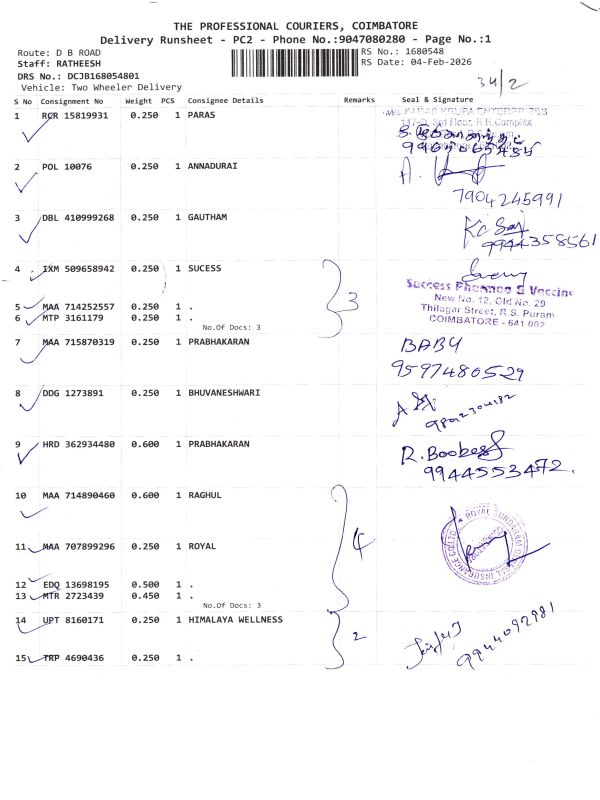 THE PROFESSIONAL COURIERS, COIMBATORE
Delivery Runsheet - PC2 - Phone No.:9047080280 - Page No.:1
Route: D B ROAD
RS No.: 1680548
Staff: RATHEESH
RS Date: 04-Feb-2026
DRS No.: DCJB168054801
Vehicle: Two Wheeler Delivery
34/2
S No Consignment No Weight PCS Consignee Details Remarks Seal & Signature
1 RCR 15819931 0.250 1 PARAS
3rd Floor, R.R Complex
2 POL 10076 0.250 1 ANNADURAI
A.
7904245991
3 DBL 410999268 0.250 1 GAUTHAM
9944358561
4 IXM 509658942 0.250 1 SUCESS
3
Success Pharmaa & Vaccine
New No. 12, Old No. 29
Thilagar Street, R.S. Puram
COIMBATORE - 641 002
5 MAA 714252557 0.250 1 .
6 MTP 3161179 0.250 1 .
No.Of Docs: 3
7 MAA 715870319 0.250 1 PRABHAKARAN
BABU
9597480529
8 DDG 1273891 0.250 1 BHUVANESHWARI
9 HRD 362934480 0.600 1 PRABHAKARAN
R. Boobesh
9944553472.
10 MAA 714890460 0.600 1 RAGHUL
4
11 MAA 707899296 0.250 1 ROYAL
ROYAL SUNDARAM
INSURANCE CO LTD
12 EDQ 13698195 0.500 1 .
13 MTR 2723439 0.450 1 .
No.Of Docs: 3
14 UPT 8160171 0.250 1 HIMALAYA WELLNESS
2
9944092981
15 TRP 4690436 0.250 1 .